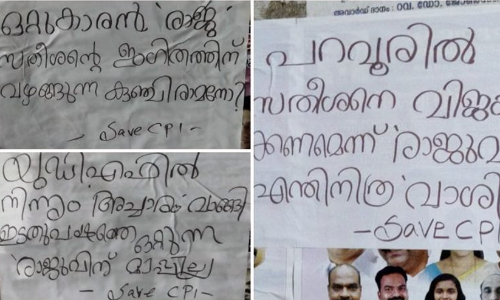 ഒറ്റുകാരൻ 'രാജു'
സതീശന്റെ ഇംഗിതത്തിന്
വഴങ്ങുന്ന കുഞ്ഞിരാമനോ?
- Save CPI -
യുഡിഎഫിൽ
നിന്നും അച്ചാരം വാങ്ങി
ഇടതുപക്ഷത്തെ ഒറ്റുന്ന
'രാജുവിന് മാപ്പില്ല
- Save CPI -
അവാർഡ് ദാനം : റവ. ഡോ.
പറവൂരിൽ
സതീശനെ വിജയ
ക്കണമെന്ന് 'രാജുവ
എന്തിനിത്ര 'വാശി
- Save CPI